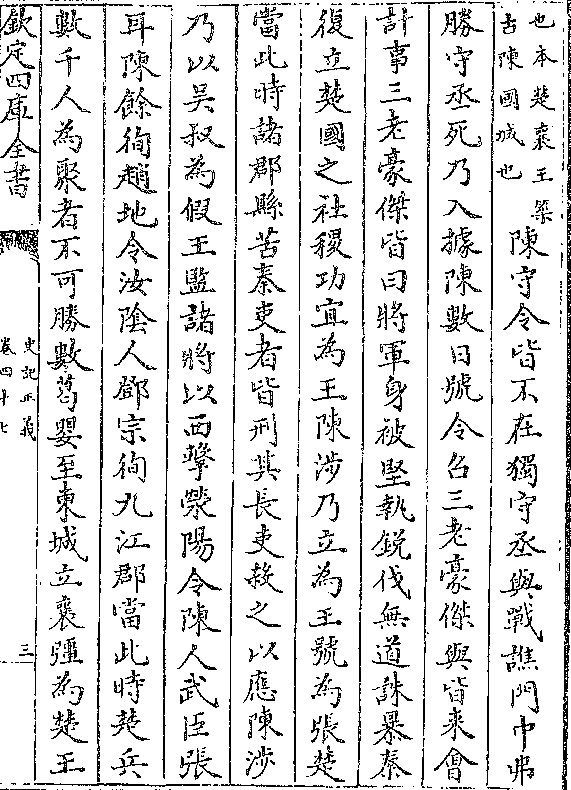 也本楚襄王築
古陳國城也
陳守令皆不在獨守丞與戰譙門中弗
勝守丞死乃入據陳數日號令召三老豪傑與皆来會
計事三老豪傑皆曰將軍身被堅執鋭伐無道誅暴秦
復立楚國之社稷功宜為王陳涉乃立為王號為張楚
當此時諸郡縣苦秦吏者皆刑其長吏殺之以應陳涉
乃以吴叔為假王監諸將以西擊滎陽令陳人武臣張
耳陳餘徇趙地令汝陰人鄧宗徇九江郡當此時楚兵
數千人為聚者不可勝數葛嬰至東城立襄彊為楚王
欽定四庫全書
史記正義
卷四十七
三